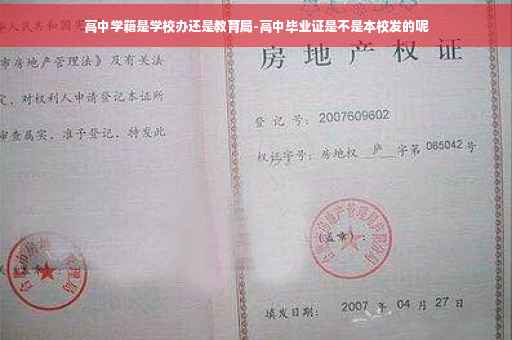 高中学籍是学校办还是教育局-高中毕业证是不是本校发的呢
人民共和国宪
市房地产管理法》及有关法
定，对权利人申请登记本证所
审查属实，准予登记，特发此
房地产权证
登记号：2007609602
权证字号：房地权 庐 字第 085042 号
(盖章)：
填发日期：2007 年 04 月 27 日